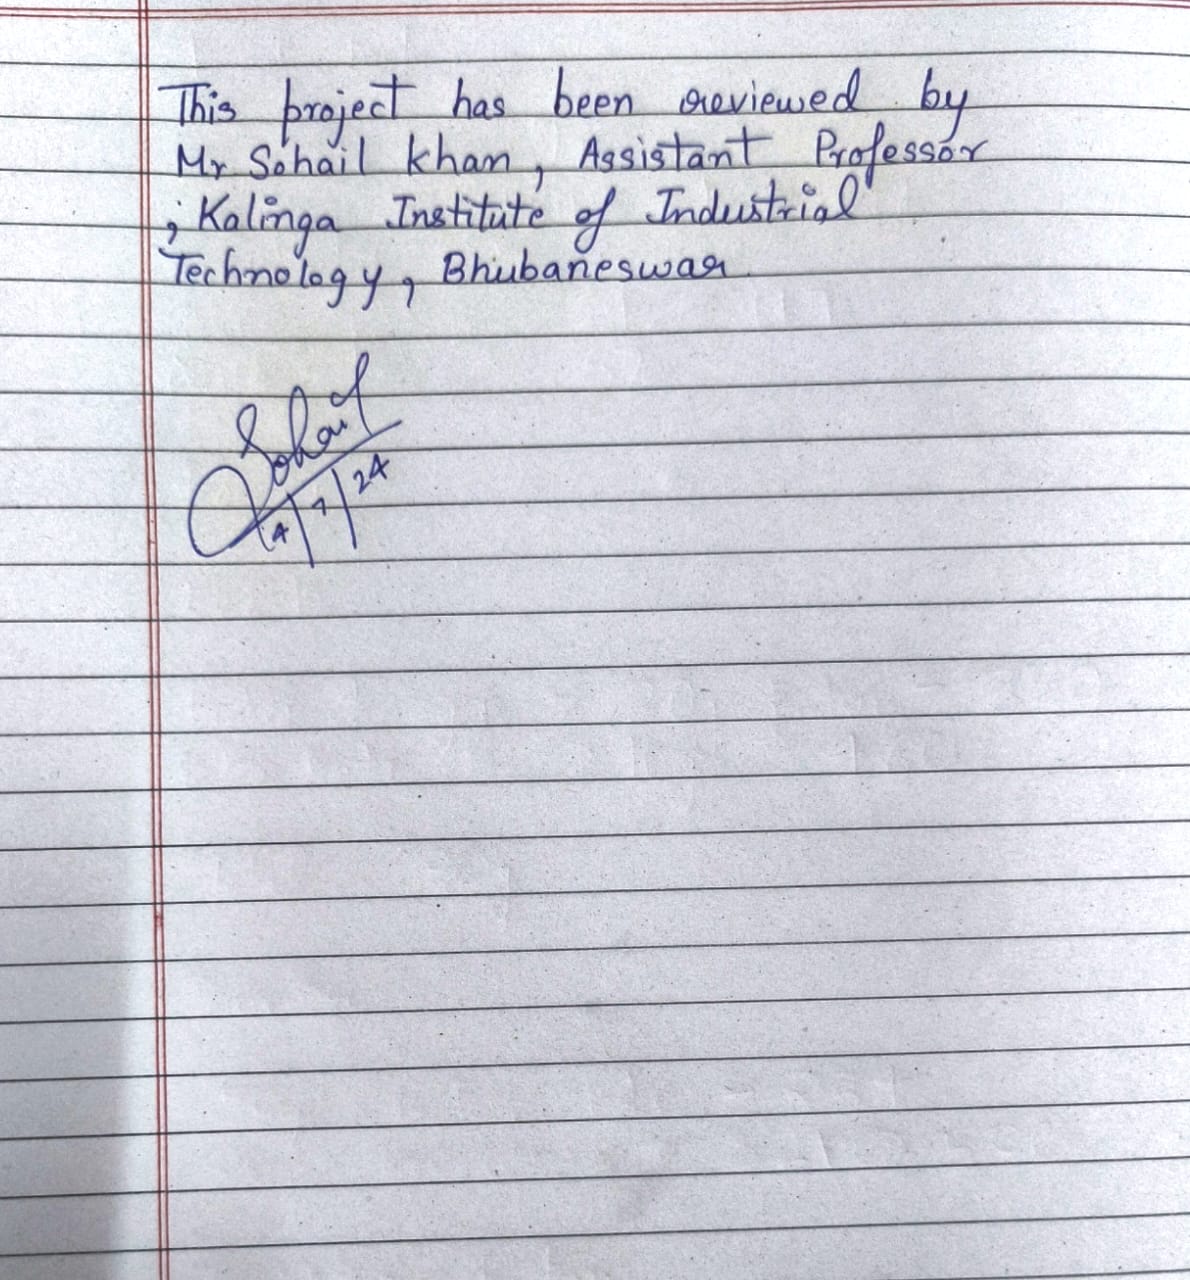 This project has been reviewed by
Mr Sohail Khan, Assistant Professor
, Kalinga Institute of Industrial
Technology, Bhubaneswar
Sohail
4/7/24